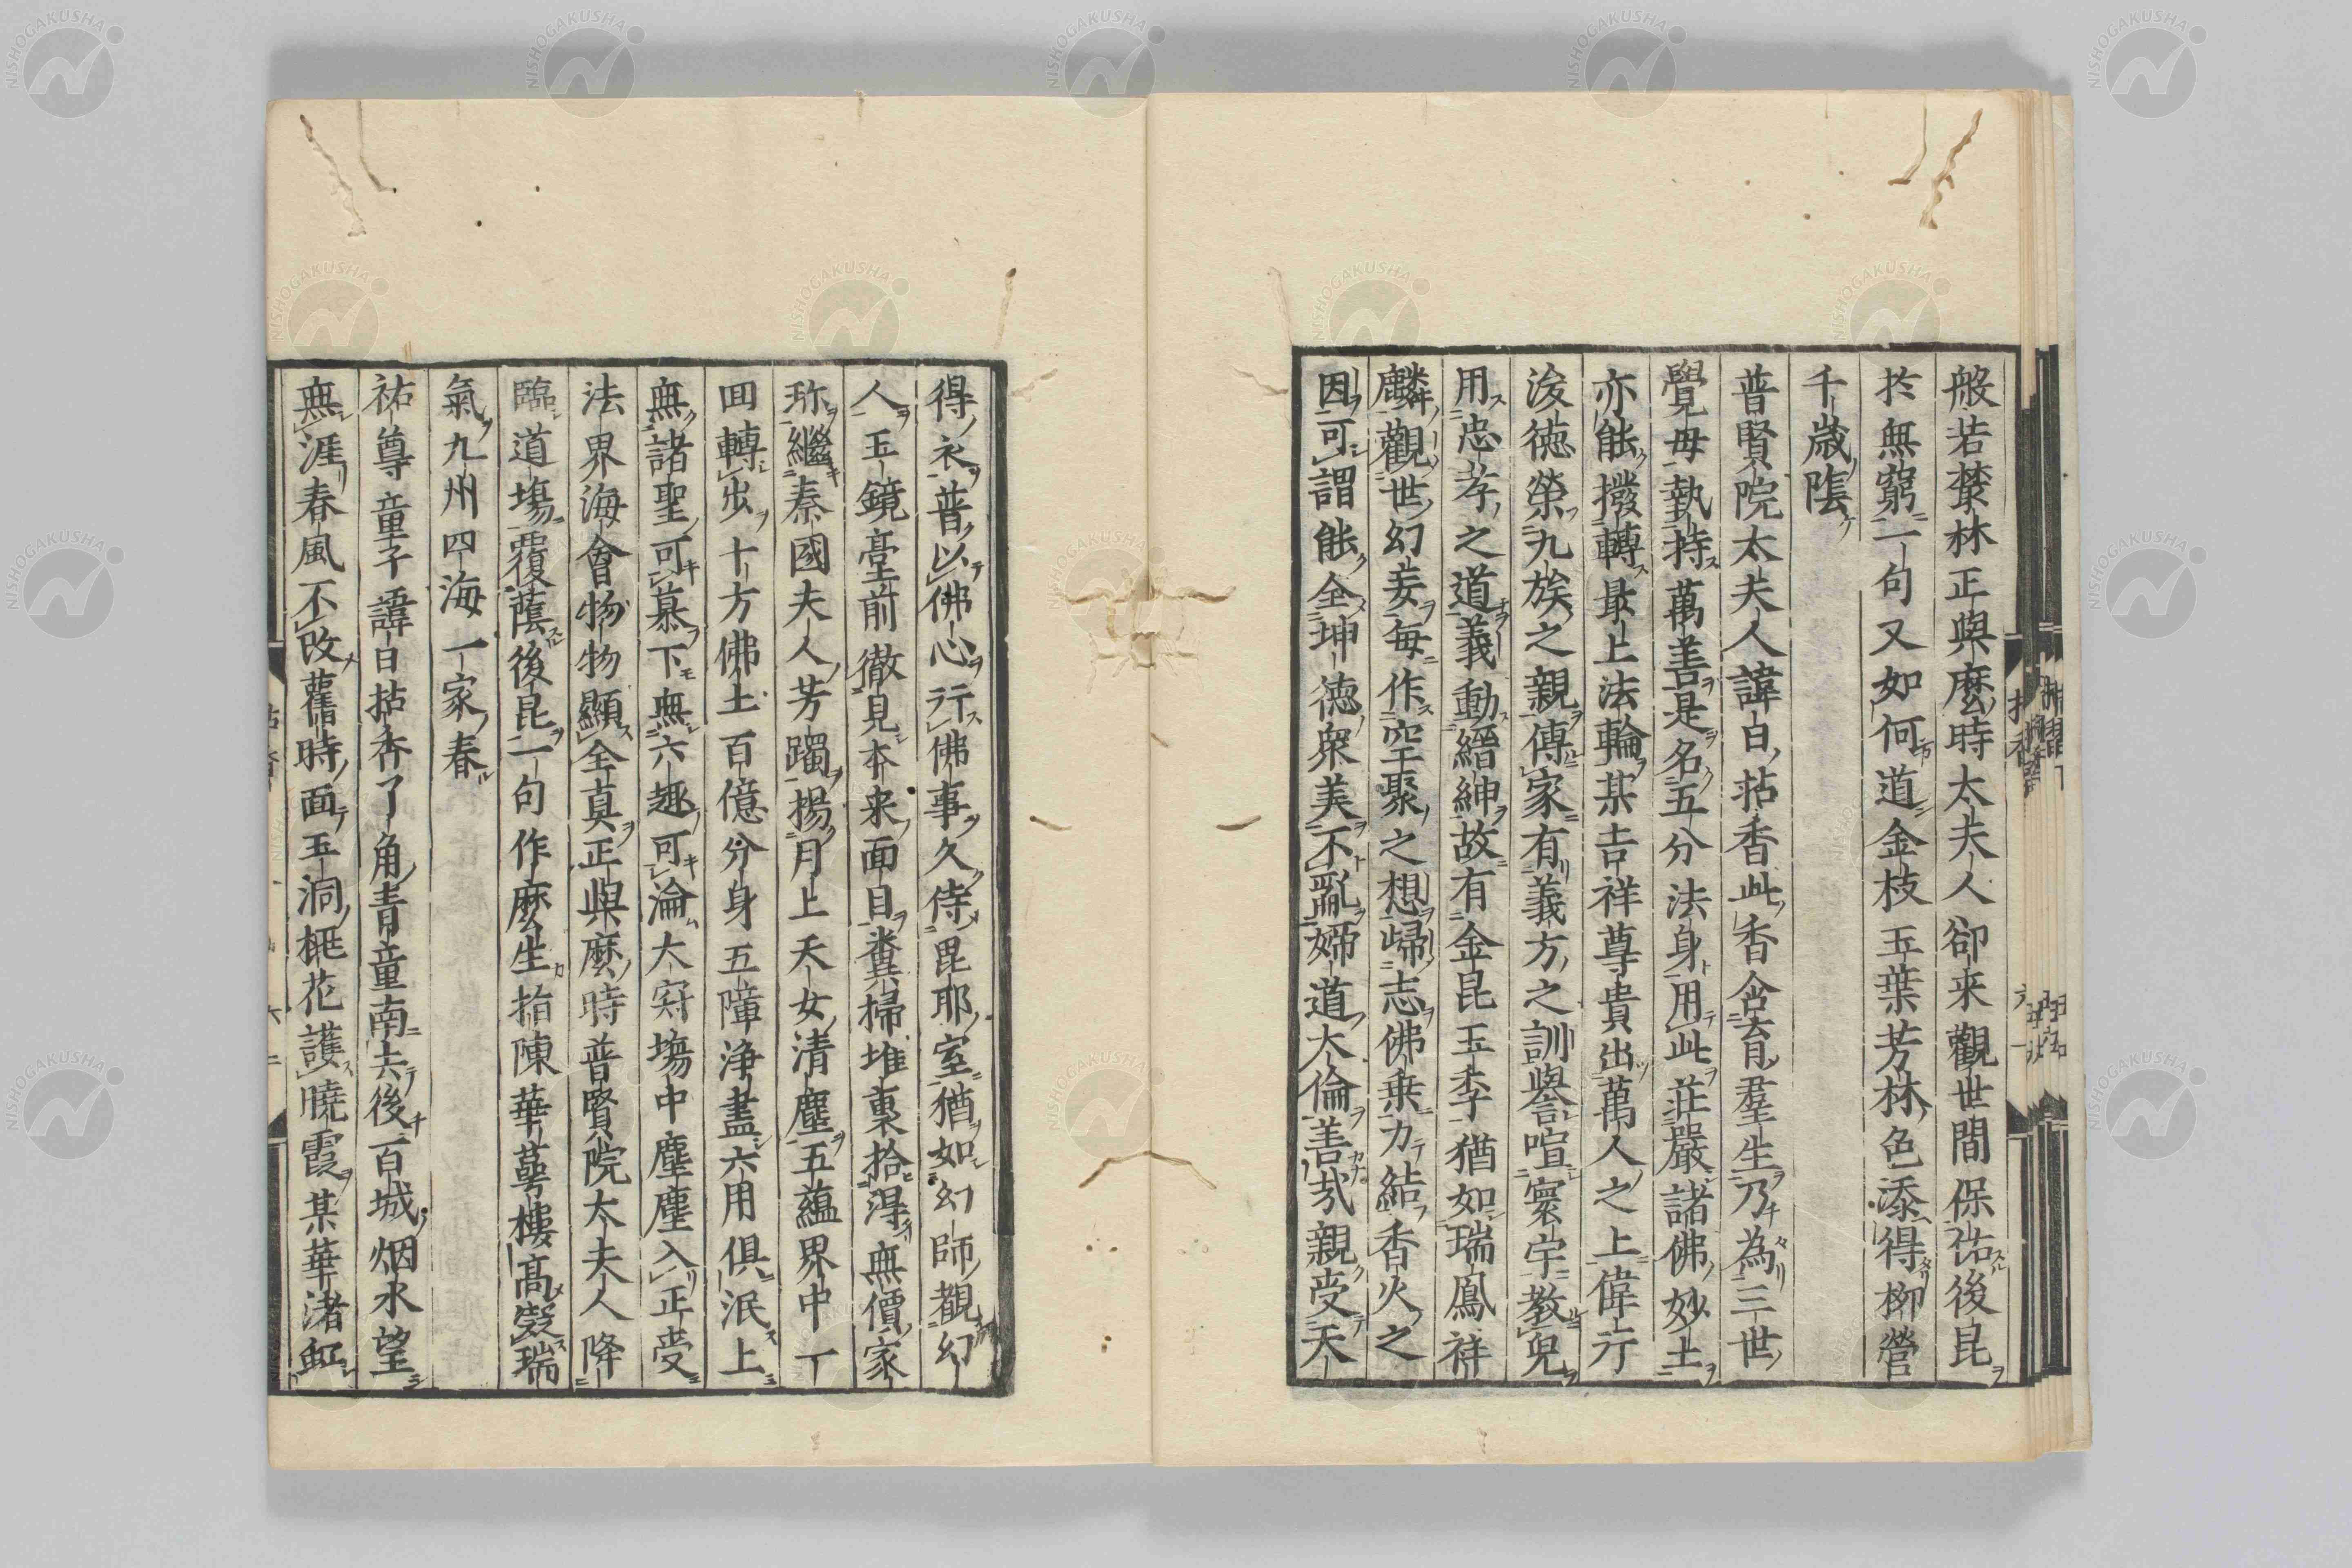 般若藂林正與麼時太夫人卻来觀世間保祐後昆
扵無窮一句又如何道金枝玉葉芳林色添得柳營
千歲蔭
普賢院太夫人諱日拈香此香含育羣生乃為三世
覺母執持萬善是名五分法身用此莊嚴諸佛妙土
亦能撥轉最上法輪某吉祥尊貴出萬人之上偉行
浚徳榮九族之親傳家有義方之訓譽喧寰宇教兒
用忠孝之道義動縉紳故有金昆玉季猶如瑞鳳祥
麟觀世幻妄每作空聚之想歸志佛乗力結香火之
因可謂能全坤徳衆美不亂婦道大倫善哉親受天
得衣普以佛心行佛事久侍毘耶室猶如幻師觀幻
人玉鏡臺前徹見本来面目糞掃堆裏拾得無價家
珎繼秦國夫人芳躅揚月上天女清塵五蘊界中一
回轉出十方佛土百億分身五障浄盡六用俱泯上
無諸聖可慕下無六趣可淪大寂塲中塵塵入正受
法界海會物物顯全真正與麼時普賢院太夫人降
臨道塲覆蔭後昆一句作麼生指陳華萼樓高發瑞
氣九州四海一家春
祐尊童子諱日拈香了角青童南去後百城烟水望
無涯春風不改舊時面玉洞桃花護曉霞某華渚虹
NISHOGAKUSHA